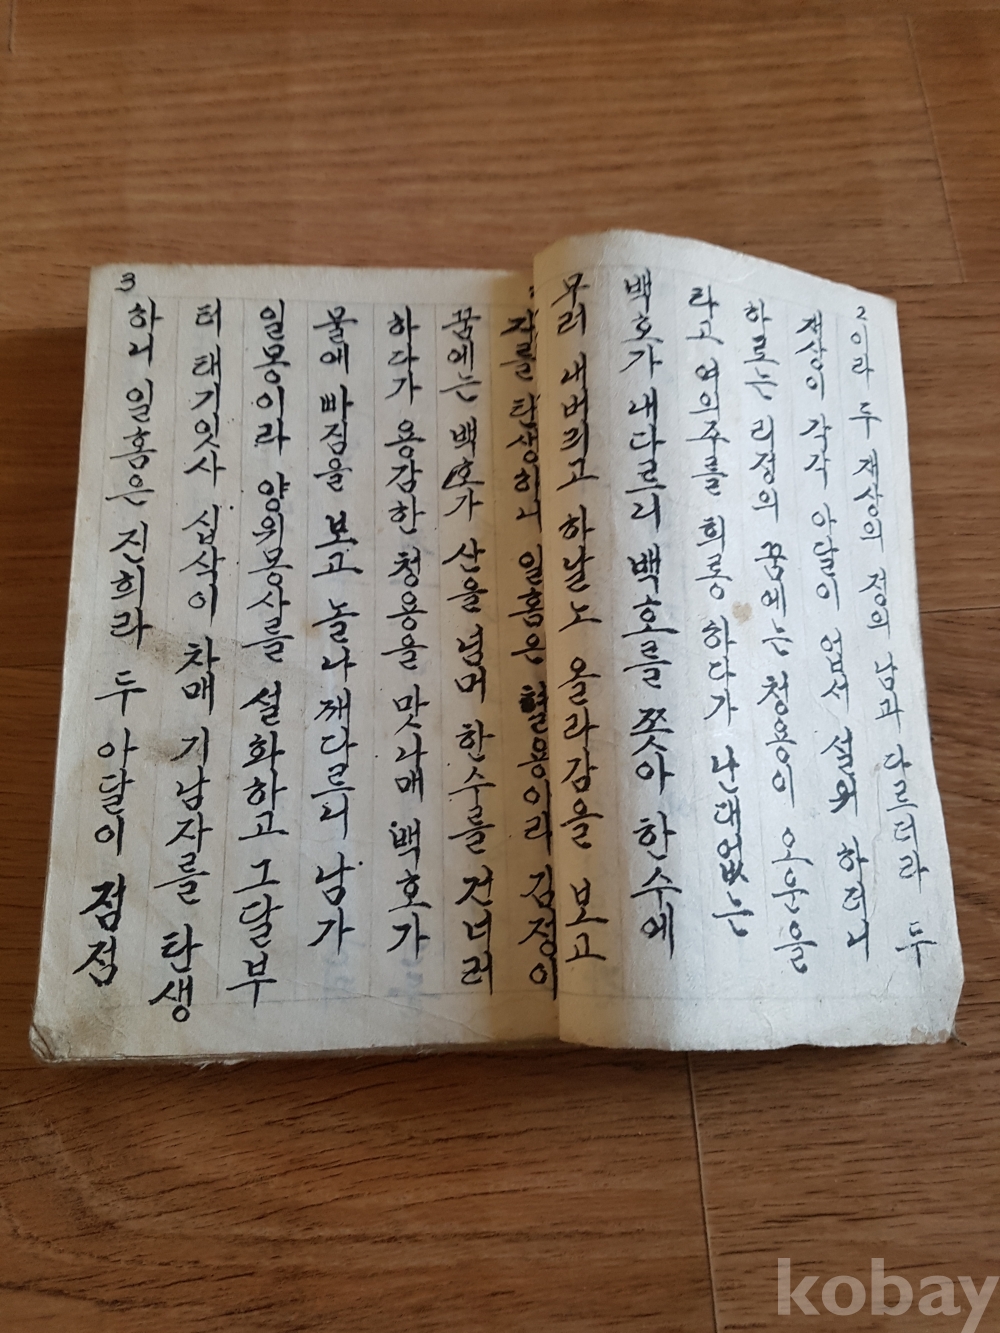 2
이라 두 재상의 정의 남과 다르더라 두
재상이 각각 아달이 업서 설워 하더니
하로는 리정의 꿈에는 청용이 오운을
타고 여의주를 희롱 하다가 난대업는
백호가 내다르니 백호를 쫏아 한수에
무러 내버리고 하날노 올라감을 보고
자를 탄생하니 일홈은 혈용이라 김정이
꿈에는 백호가 산을 넘머 한수를 건너려
하다가 용감한 청용을 맛나매 백호가
물에 빠짐을 보고 놀나 깨다르니 남가
일몽이라 양위몽사를 설화하고 그달부
터 태기잇사 십삭이 차매 기남자를 탄생
3
하니 일홈은 진희라 두 아달이 점점
kobay